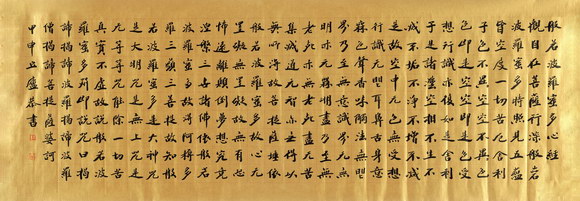 般若波羅蜜多心經
觀自在菩薩行深般若
波羅蜜多時照見五蘊
皆空度一切苦厄舍利
子色不異空空不異色
色即是空空即是色受
想行識亦復如是舍利
子是諸法空相不生不
滅不垢不淨不增不減
是故空中无色无受想
行識无眼耳鼻舌身意
无色聲香味觸法无眼
界乃至无意識界无无
明亦无无明盡乃至无
老死亦无老死盡无苦
集滅道无智亦无得以
无所得故菩提薩埵依
般若波羅蜜多故心无
罣礙无罣礙故无有恐
怖遠離顛倒夢想究竟
涅槃三世諸佛依般若
波羅蜜多故得阿耨多
羅三藐三菩提故知般
若波羅蜜多是大神咒
是大明咒是无上咒是
无等等咒能除一切苦
真實不虛故說般若
波羅蜜多咒即說咒曰揭
諦揭諦波羅揭諦波羅
僧揭諦菩提薩婆訶
甲申丘恭書